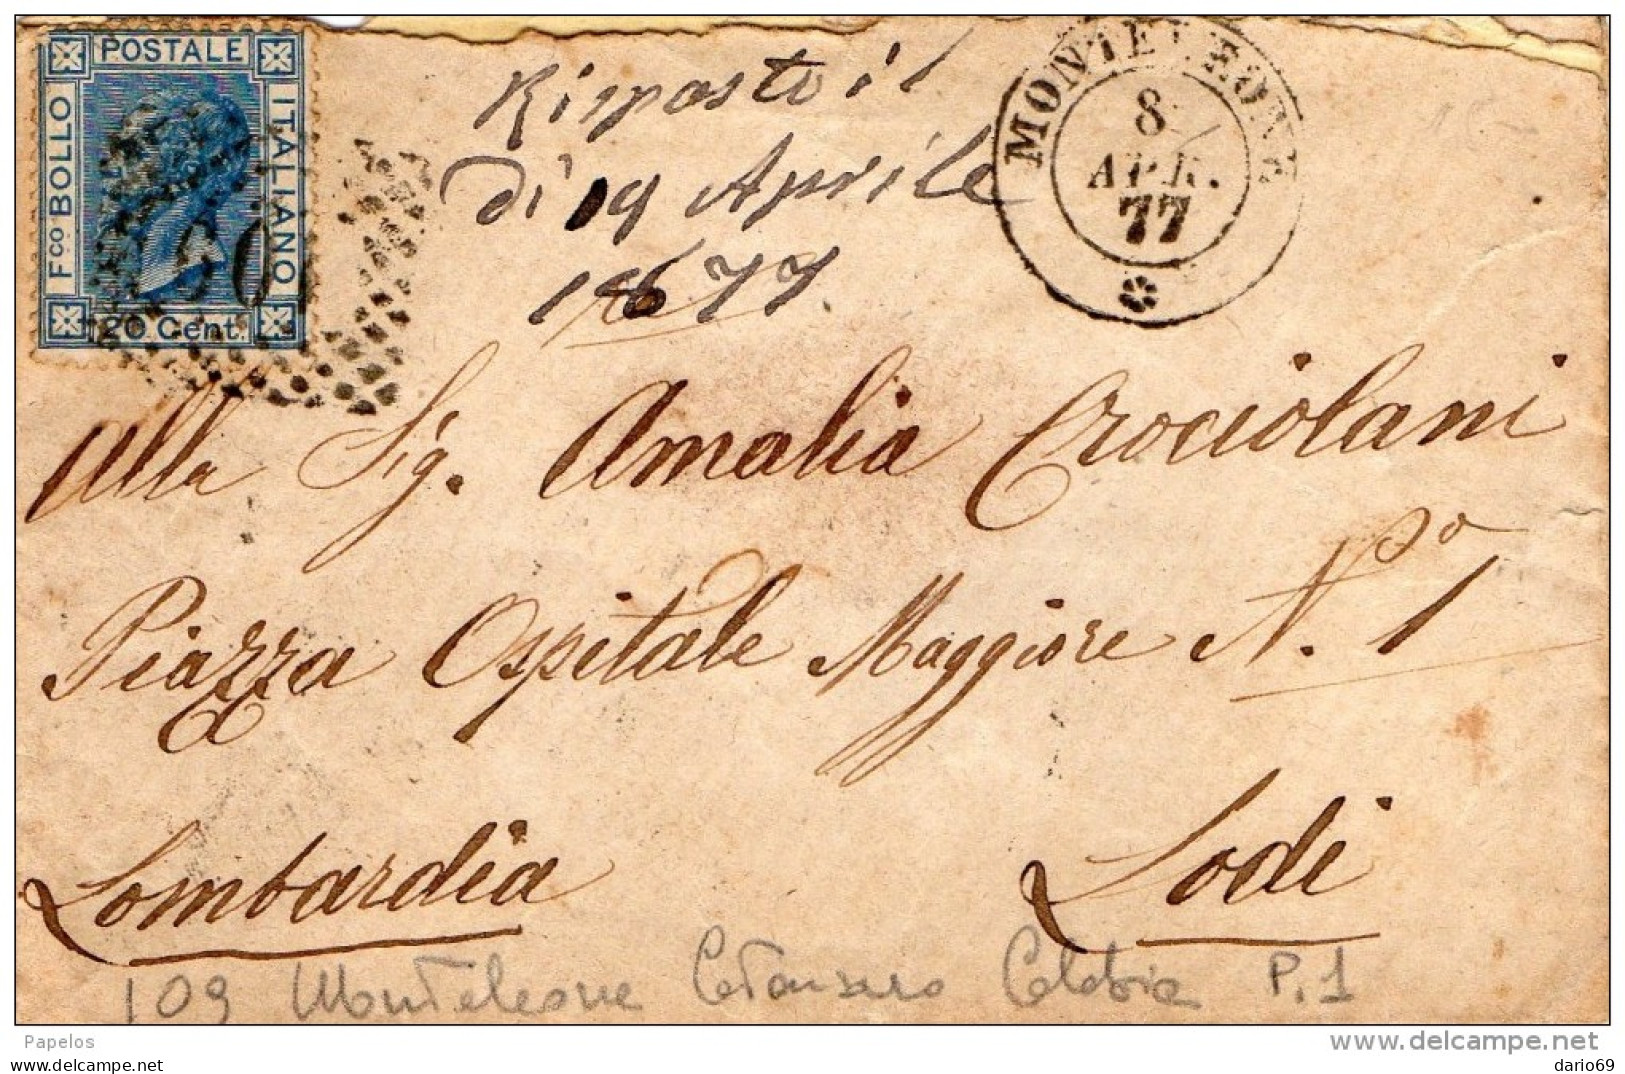 POSTALE
Fco BOLLO
ITALIANO
20 Cent.
Risposto il
di 19 Aprile
1877
MONTELEONE
8
APR.
77
Alla Sig. Amalia Crociolani
Piazza Ospitale Maggiore N. 1
Po
Lombardia
Lodi
109 Monteleone Catanzaro Calabria P.1
Papelos
www.delcampe.net
dario69